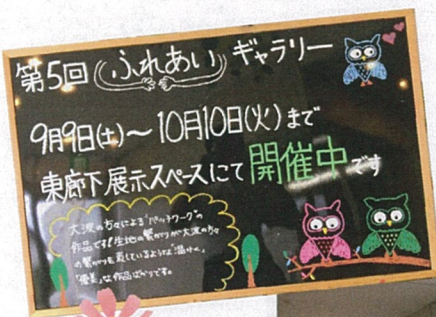 第5回 ふれあい ギャラリー
9月9日(土)～10月10日(火)まで
東廊下展示スペースにて開催中です
大波の方々による"パッチワーク"の
作品です!生地の繋がりが大波の方々
の繋がりを表しているような"温かく、
"優美"な作品ばかりです。